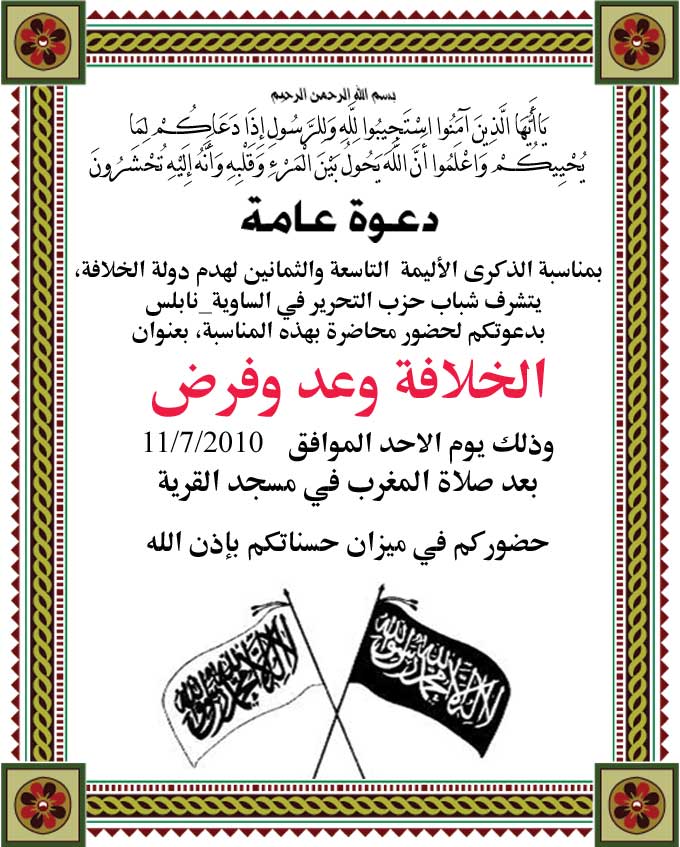 بسم الله الرحمن الرحيم
يَا أَيُّهَا الَّذِينَ آمَنُوا اسْتَجِيبُوا لِلَّهِ وَلِلرَّسُولِ إِذَا دَعَاكُمْ لِمَا
يُحْيِيكُمْ وَاعْلَمُوا أَنَّ اللَّهَ يَحُولُ بَيْنَ الْمَرْءِ وَقَلْبِهِ وَأَنَّهُ إِلَيْهِ تُحْشَرُونَ
دعوة عامة
بمناسبة الذكرى الأليمة التاسعة والثمانين لهدم دولة الخلافة،
يتشرف شباب حزب التحرير في الساوية_نابلس
بدعوتكم لحضور محاضرة بهذه المناسبة، بعنوان
الخلافة وعد وفرض
وذلك يوم الاحد الموافق 11/7/2010
بعد صلاة المغرب في مسجد القرية
حضوركم في ميزان حسناتكم بإذن الله
لا إله إلا الله محمد رسول الله
لا إله إلا الله محمد رسول الله